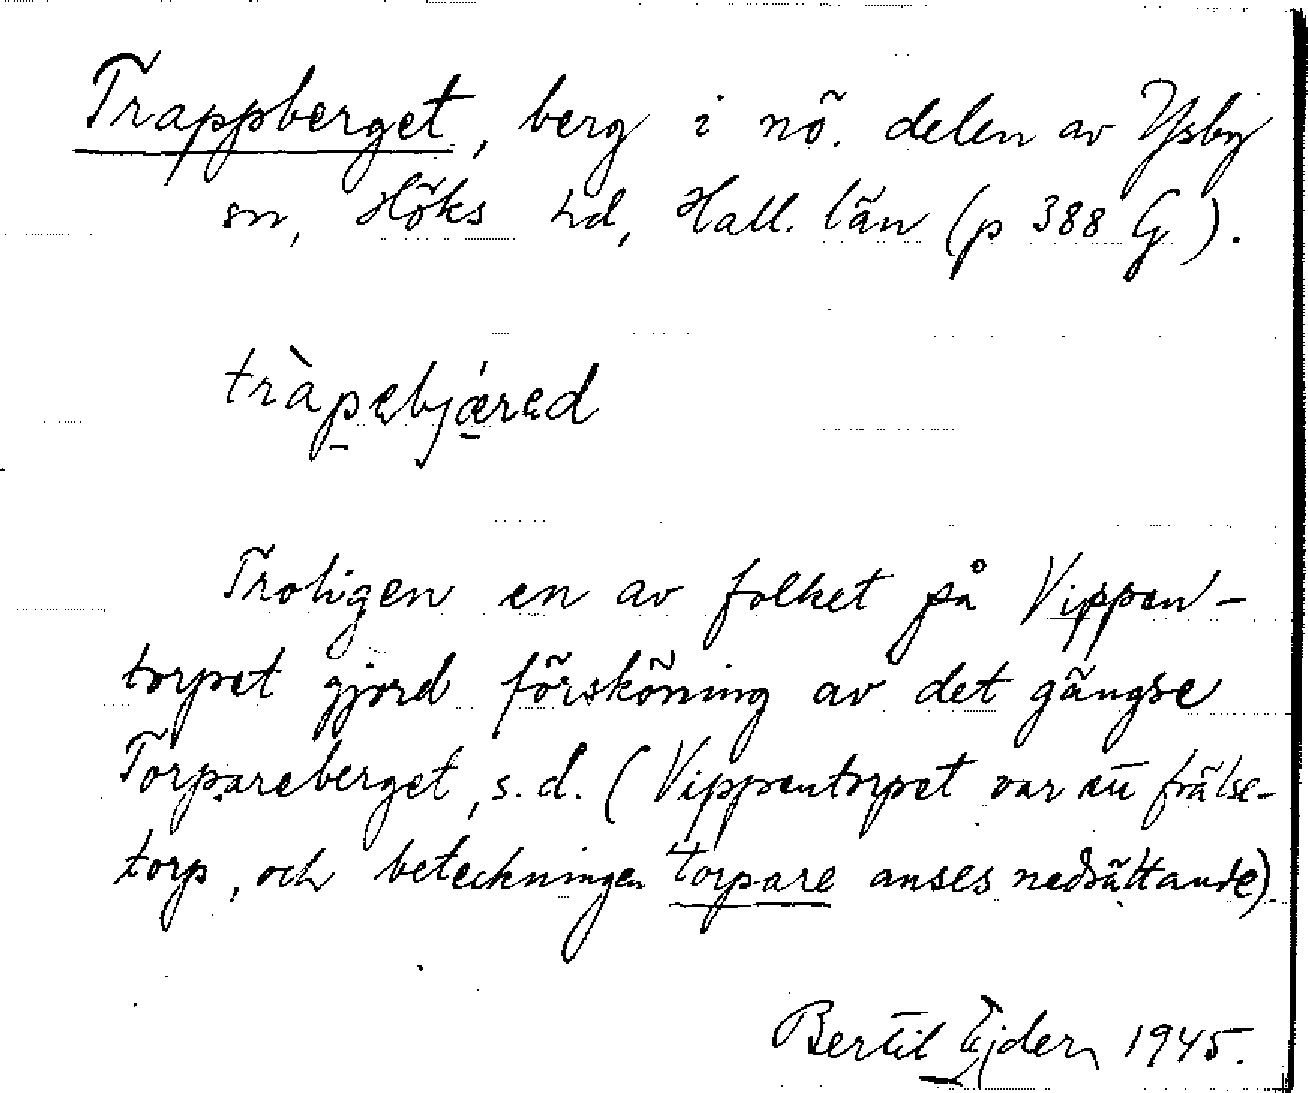 Trappberget, berg i nö. delen av Ysby
sn, Höks hd, Hall. län (p 388 G).
tràpebjǽred
Troligen en av folket på Vippen-
torpet gjord förskóning av det gängse
Torpareberget, s. d. (Vippentorpet var ett frälse-
torp, och beteckningen torpare anses nedsättande).
Bertil Ejder 1945.